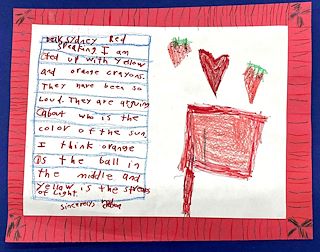 Dear Sydney Red
Speaking I am
fed up with Yellow
and orange crayons.
They have been so
Loud. They are arguing
about who is the
color of the sun.
I think orange
is the ball in
the middle and
Yellow is the
of Light.
sincerely